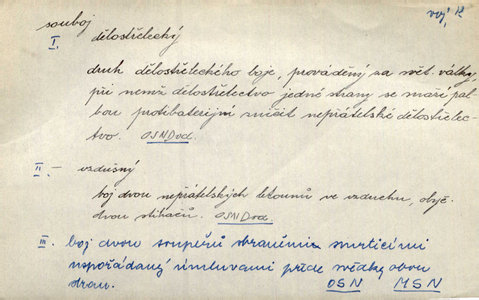 souboj
voj.
I. dělostřelecký
druh dělostřeleckého boje, prováděný za svět. války,
při němž dělostřelectvo jedné strany se snaží pal-
bou protibaterijní zničit nepřátelské dělostřelec-
tvo. OSNDod.
II. – vzdušný
boj dvou nepřátelských letounů ve vzduchu, obyč.
dvou stihačů. OSNDod.
III. boj dvou soupeřů zbraněmi smrtícími
uspořádaný úmluvami přede svědky obou
stran. OSN MSN